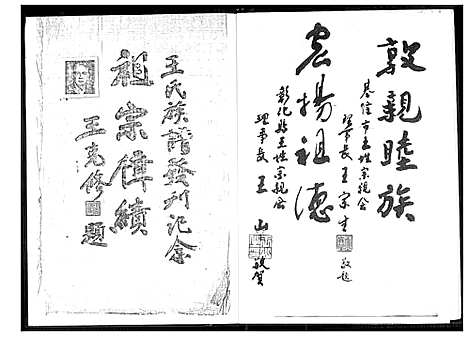 敦親睦族
基隆市王姓宗親會
理事長王宗生
敬題
宏揚祖德
彰化縣王姓宗親會
理事長王山
敬賀
王氏族譜發刊紀念
祖宗偉績
王克修
題